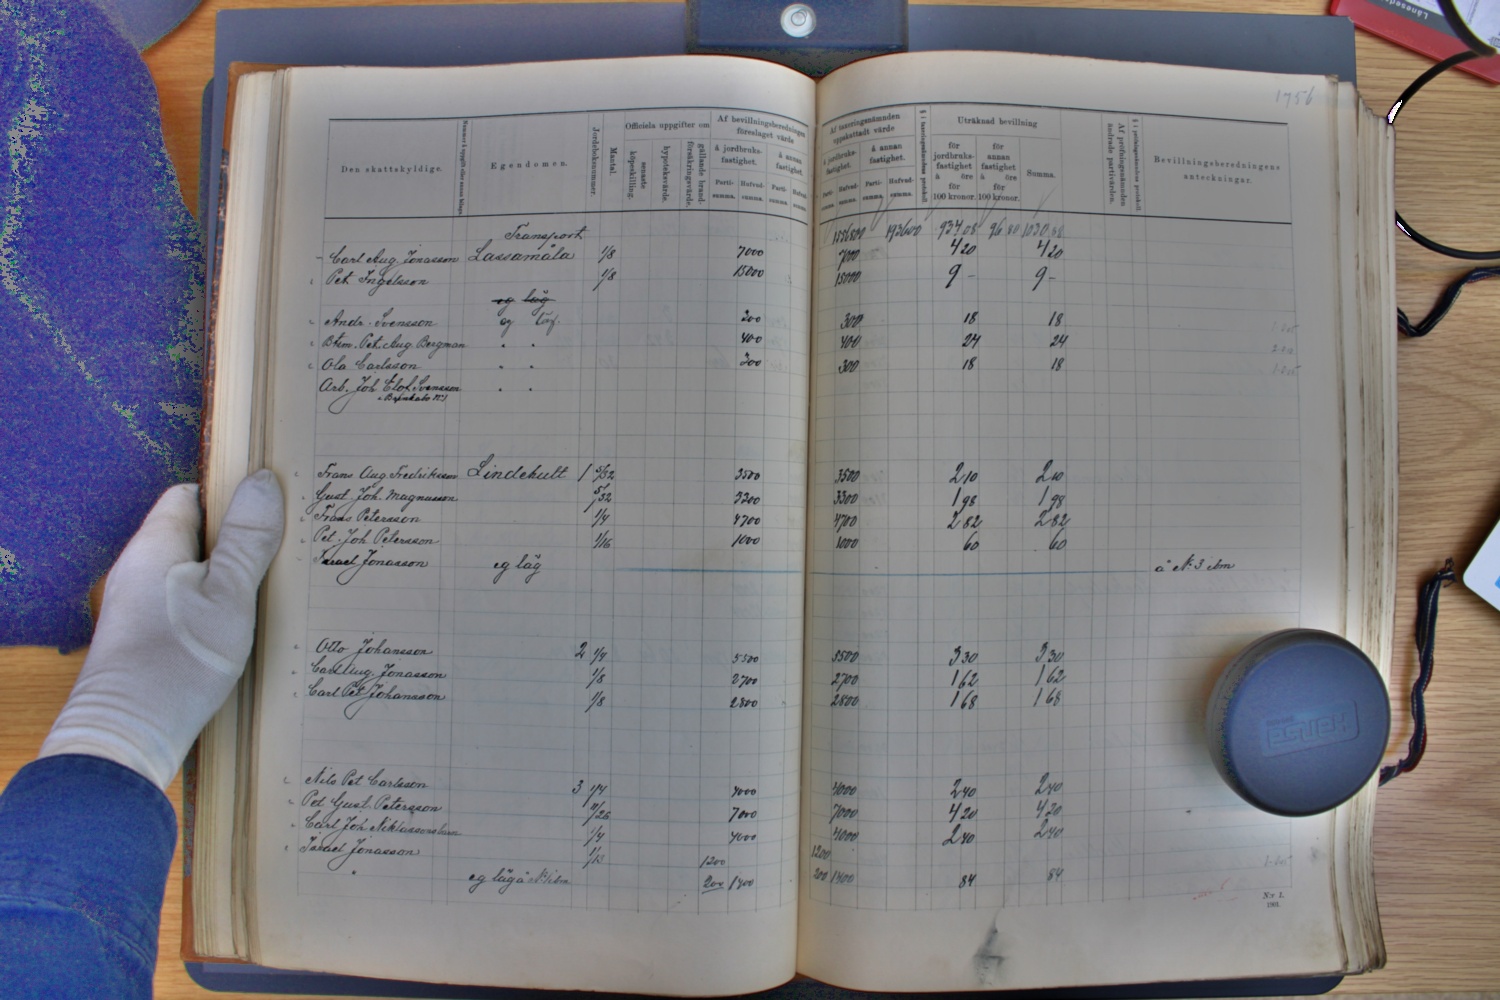 1756
Den skattskyldige.
Egendomen.
Jordeboksnummer.
Mantal.
Officiela uppgifter om
senaste köpeskilling.
hypoteksvärde.
gällande brandförsäkringsvärde.
Af bevillningsberedningen föreslaget värde
å jordbruksfastighet.
å annan fastighet.
Parti-summa. Hufvud-summa. Parti-summa. Hufvud-summa.
Af taxeringsnämnden uppskattadt värde
å jordbruksfastighet.
å annan fastighet.
Parti-summa. Hufvud-summa. Parti-summa. Hufvud-summa.
§ i taxeringsnämndens protokoll
Uträknad bevillning
för jordbruksfastighet å öre för 100 kronor.
för annan fastighet å öre för 100 kronor.
Summa.
Af pröfningsnämnden ändrade partivärden.
§ i pröfningsnämndens protokoll
Bevillningsberedningens anteckningar.
Transport 193600 934 08 96 80 1030 88
Carl Aug. Jonasson Lassamåla 1/8 7000 7000 4 20 4 20
Pet. Ingelsson 1/8 15000 15000 9 - 9 -
eg läg
Andr. Svensson eg läg. 300 300 18 18
Pet. Aug. Bergman " " 400 400 24 24
Ola Carlsson " " 300 300 18 18
Arb. Joh Elof Svensson " "
Frans Aug Fredriksson Lindehult 1 5/32 3500 3500 2 10 2 10
Gust. Joh. Magnusson 5/32 3300 3300 1 98 1 98
Frans Petersson 1/4 4700 4700 2 82 2 82
Pet. Joh Petersson 1/16 1000 1000 60 60
Israel Jonasson eg läg å N:3 ibm
Otto Johansson 2 1/4 5500 5500 3 30 3 30
Carl Aug. Jonasson 1/8 2700 2700 1 62 1 62
Carl Pet Johansson 1/8 2800 2800 1 68 1 68
Nils Pet Carlsson 3 1/4 4000 4000 2 40 2 40
Pet. Gust. Petersson 7000 7000 4 20 4 20
Carl Joh Niklasson 1/4 4000 4000 2 40 2 40
Israel Jonasson 1200 1200
" eg läg å N:1 ibm 200 1400 200 1400 84 84
N:r 1.
1901.
hansa